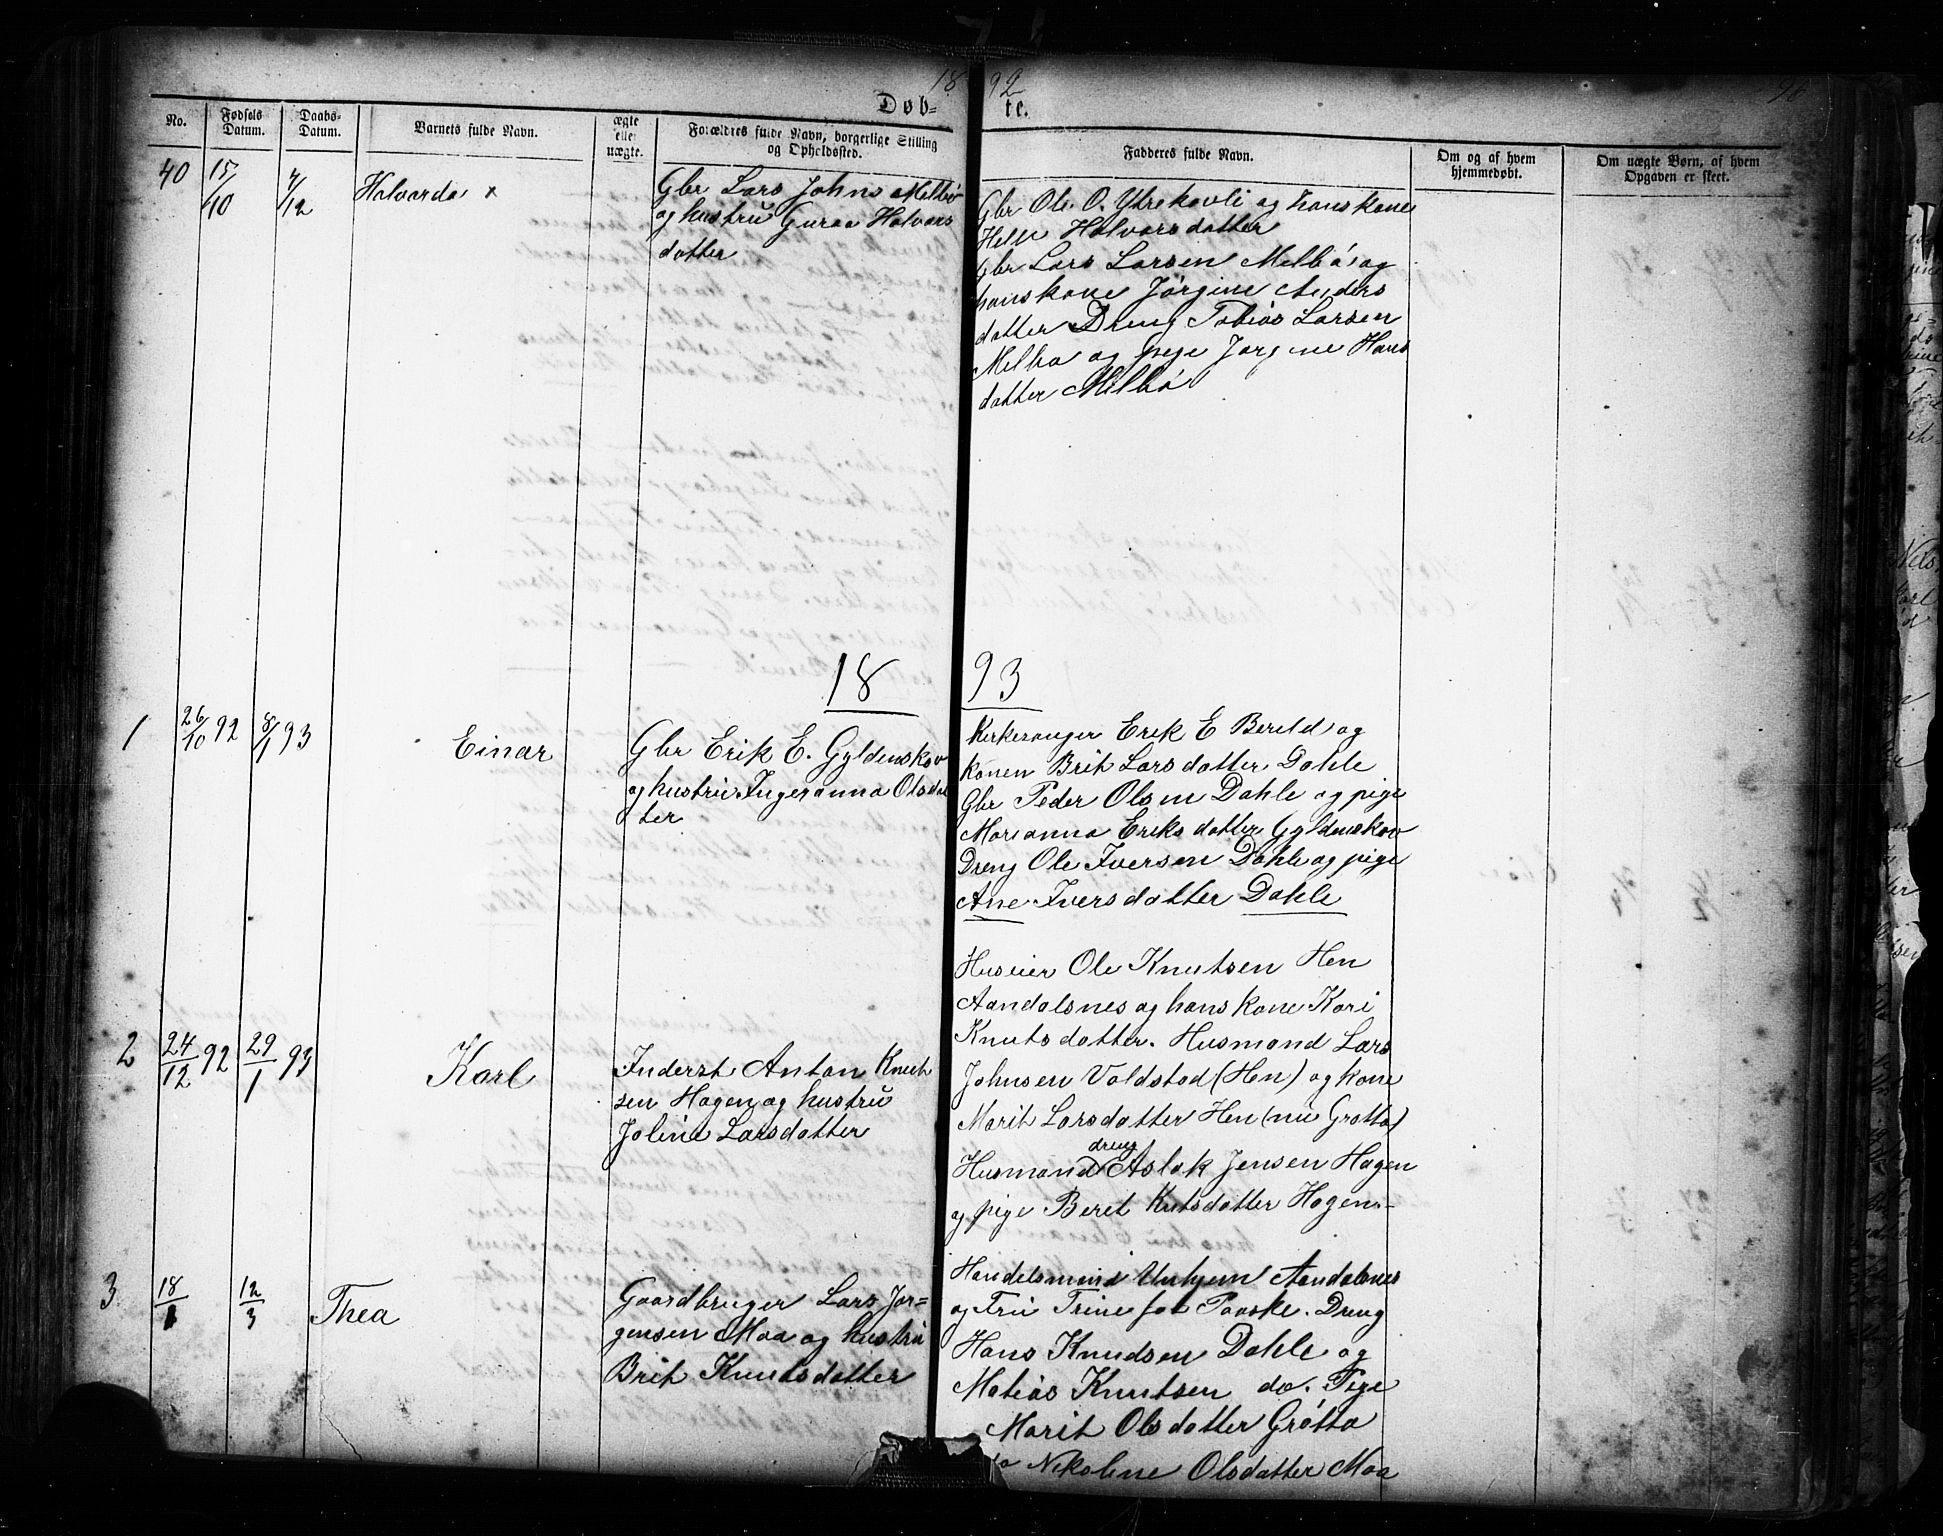 18 92
Døb- te.
No.
Fødsels Datum.
Daabs-Datum.
Barnets fulde Navn.
ægte eller uægte.
Forældres fulde Navn, borgerlige Stilling og Opholdssted.
Fadderes fulde Navn.
Om og af hvem hjemmedøbt.
Om uægte Børn, af hvem Opgaven er skeet.
40 15/10 4/12 Halvarda x
Gbr Lars Johns Melbø
og hustru Guroa Halvors
datter
Gbr Ole O. Ytrekavli og hans kone
Halvorsdatter
Gbr Lars Larsen Melbø og
hans kone Jørgine Anders
datter Dreng Tobias Larsen
Melbø og pige Jørgine Hans
datter Melbø
18 93
1 26/10 92 8/1 93 Einar
Gbr Erik E. Gyldenskov
og hustru Ingeranna Olsdat
ter
Kirkesanger Erik E Berild og
konen Brit Larsdatter Dahle
Gbr Peder Olsen Dahle og pige
Marianna Eriksdatter Gyldenskov
Dreng Ole Iversen Dahle og pige
Ane Iversdatter Dahle
2 24/12 92 29/1 93 Karl
Inderst Anton Knut
sen Hagen og hustru
Joline Larsdatter
Huseier Ole Knutsen Hen
Aandalsnes og hans kone Kari
Knutsdatter. Husmand Lars
Johnsen Voldstad (Hen) og kone
Marit Larsdatter Hen (nu Grøtta)
dreng
Husmand Aslak Jensen Hagen
og pige Beret Kutsdatter Hagen.-
3 18/1 12/3 Thea
Gaardbruger Lars Jør=
gensen Moa og hustru
Brit Knutsdatter
Handelsmand Unhjem Aandalsnes
og Fru Trine Paaske. Dreng
Hans Knudsen Dahle og
Matias Knutsen do. Pige
Marit Olsdatter Grøtta
do Nikoline Olsdatter Moa